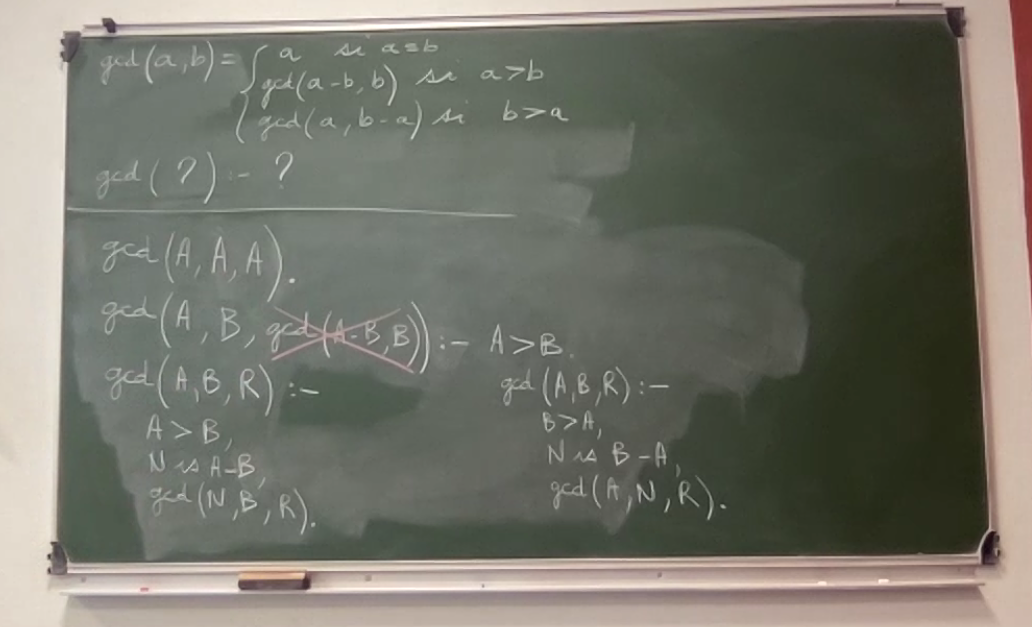 gcd(a,b)= { a si a=b
gcd(a-b, b) si a>b
gcd(a, b-a) si b>a
gcd( ? ):- ?
gcd(A, A, A).
gcd(A, B, gcd(A-B,B)):- A>B.
gcd(A,B,R):-
A>B,
N is A-B,
gcd(N,B,R).
gcd(A,B,R):-
B>A,
N is B-A,
gcd(A,N,R).